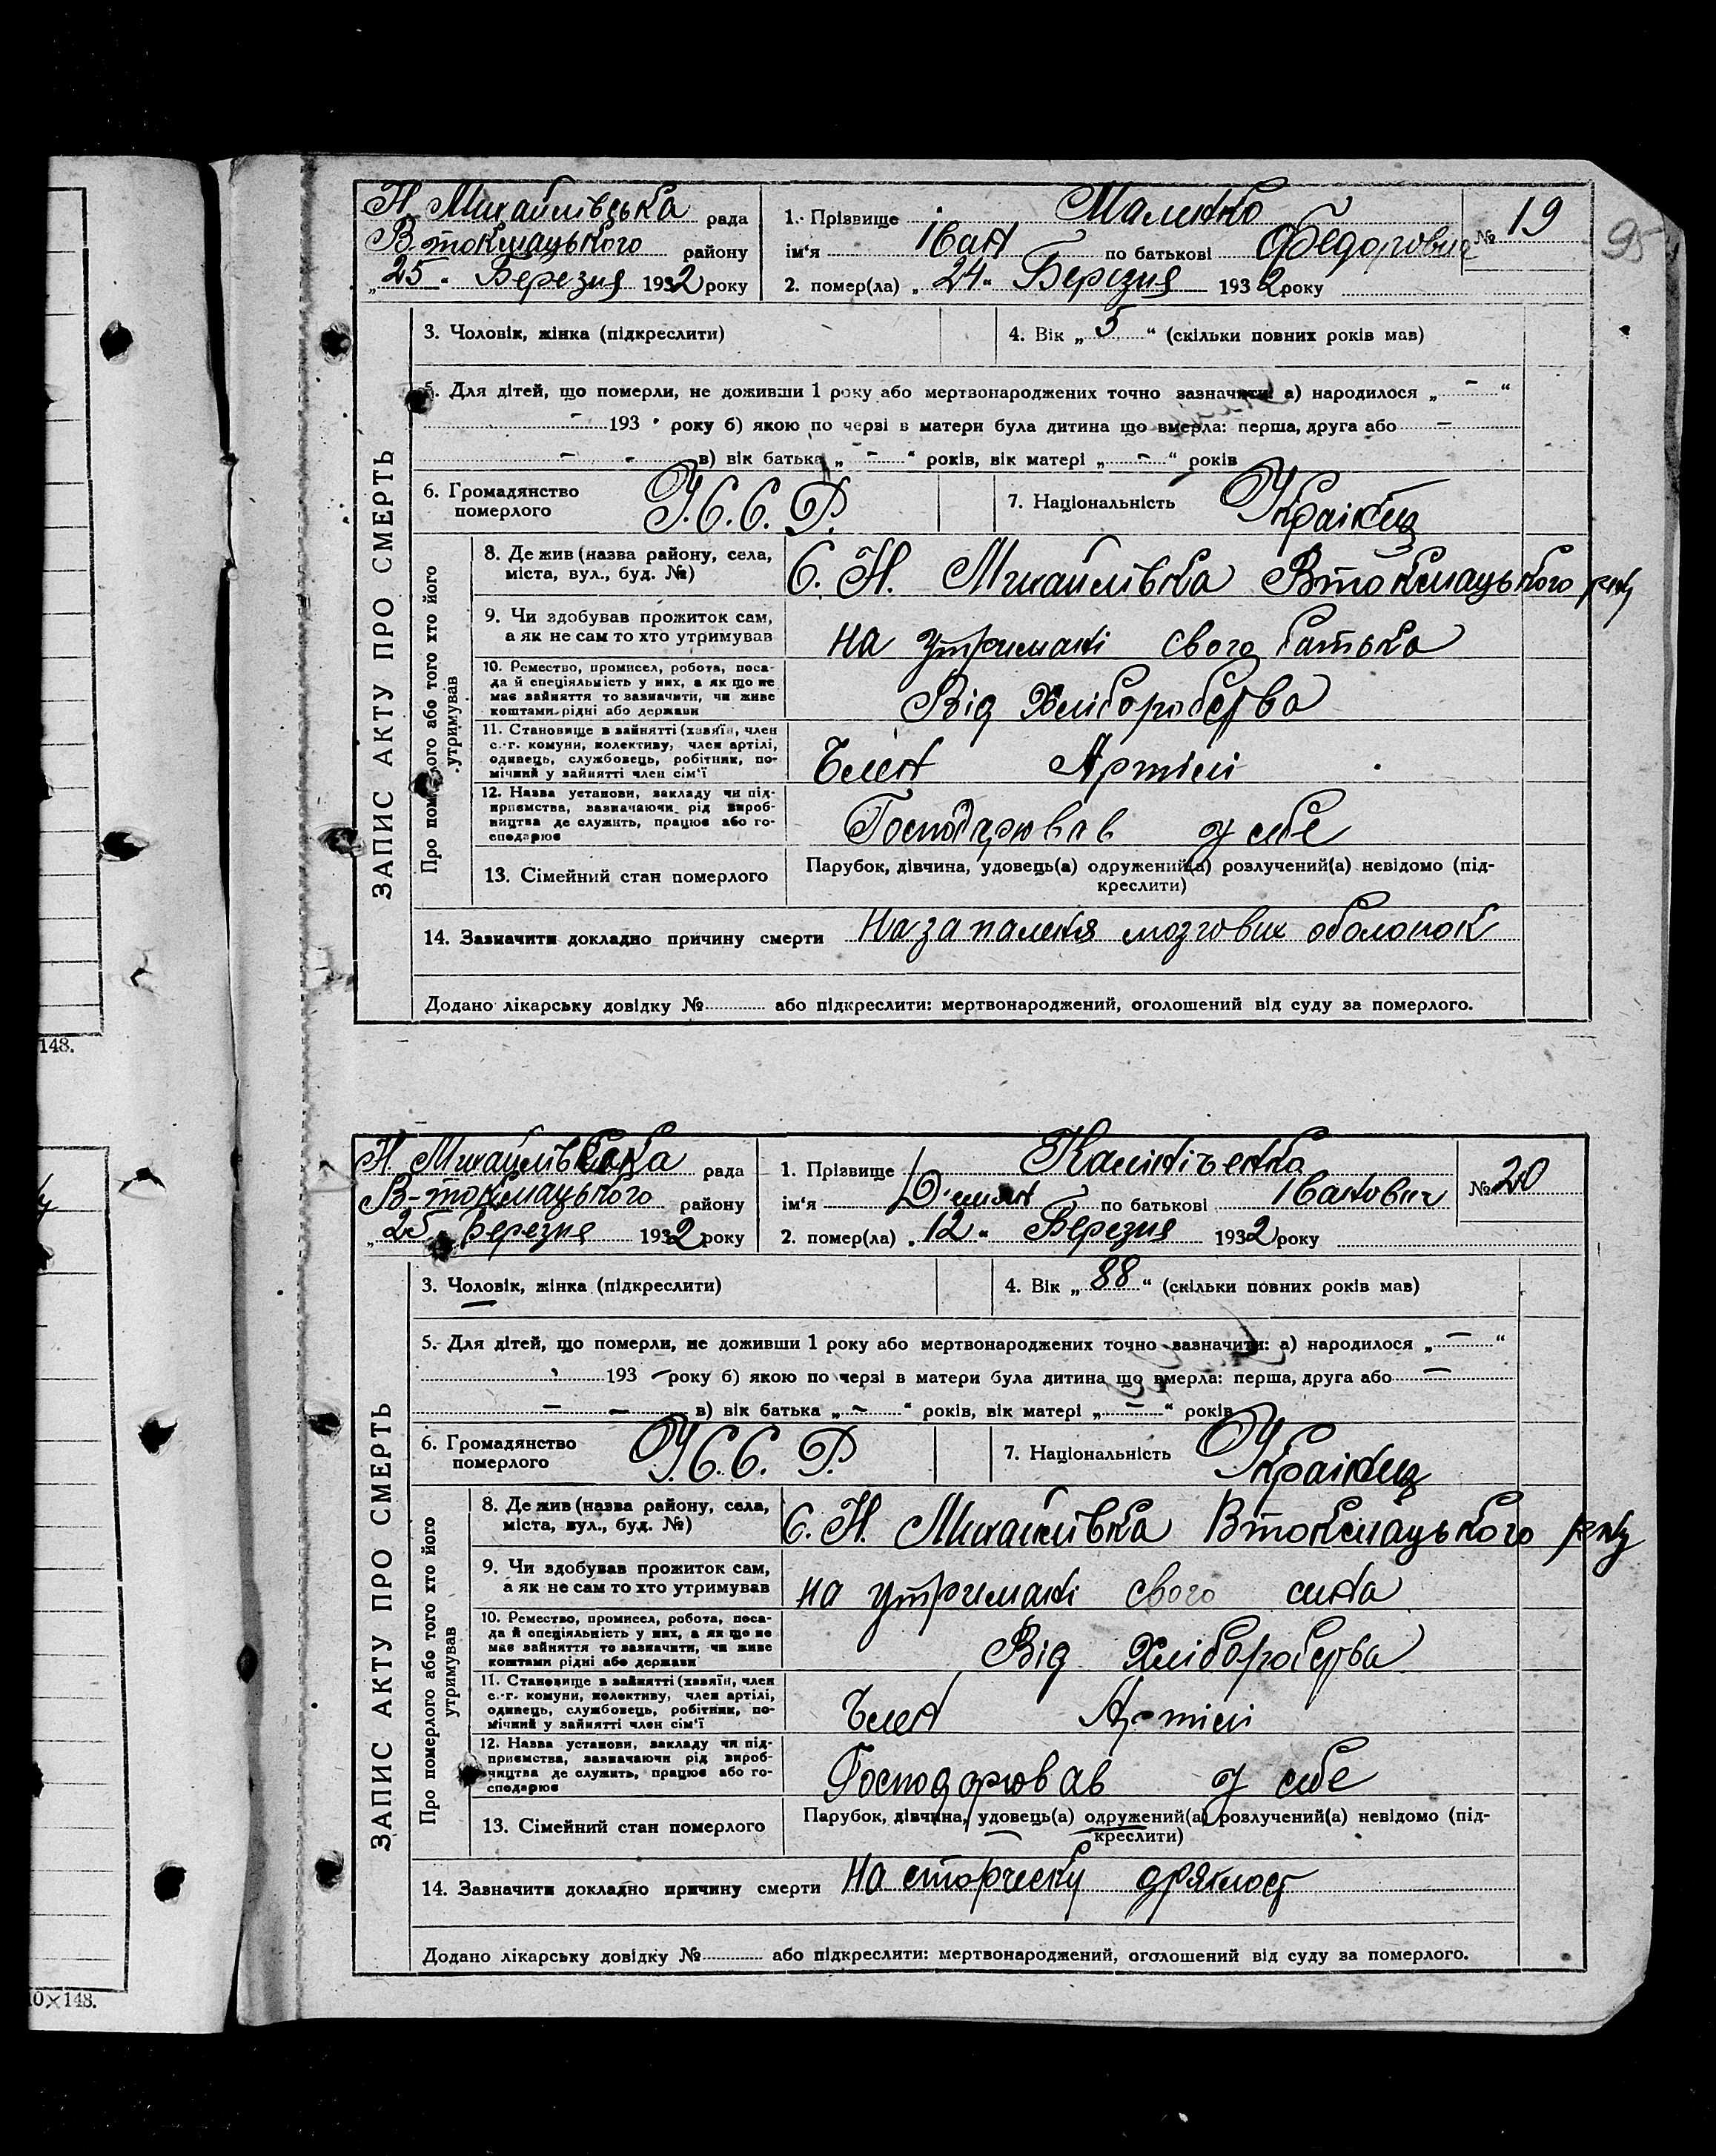 Н. Михайлівська рада
В-токмацького району
„25“ Березня 1932 року
1. Прізвище Маленко
ім'я Іван по батькові Федорович
2. помер(ла) „24“ Березня 1932 року
№ 19
95
3. Чоловік, жінка (підкреслити)
4. Вік „5“ (скільки повних років мав)
5. Для дітей, що померли, не доживши 1 року або мертвонароджених точно зазначити: а) народилося „ - “
- 193 року б) якою по черзі в матери була дитина що вмерла: перша, друга або -
- - в) вік батька „ - “ років, вік матері „ - “ років
6. Громадянство
померлого
У.С.С.Р.
7. Національність Українц
ЗАПИС АКТУ ПРО СМЕРТЬ
Про померлого або того хто його
утримував
8. Де жив (назва району, села,
міста, вул., буд. №)
С. Н. Михайлівка Втокмацького р-ну
9. Чи здобував прожиток сам,
а як не сам то хто утримував
на утримані свого батька
10. Ремество, промисел, робота, поса-
да й спеціяльність у них, а як що не
має зайняття то зазначити, чи живе
коштами рідні або держави
Від Хліборобства
11. Становище в зайнятті (хазяїн, член
с.-г. комуни, колективу, член артілі,
одинець, службовець, робітник, по-
мічний у зайнятті член сім'ї
Член Артілі
12. Назва установи, закладу чи під-
приємства, зазначаючи рід вироб-
ництва де служить, працює або го-
сподарює
Господарював у себе
13. Сімейний стан померлого
Парубок, дівчина, удовець(а) одружений(а) розлучений(а) невідомо (під-
креслити)
14. Зазначити докладно причину смерти На запаленя мозгових оболонок
Додано лікарську довідку № або підкреслити: мертвонароджений, оголошений від суду за померлого.
148.
Н. Михайлівська рада
В-токмацького району
„25“ Березня 1932 року
1. Прізвище Калініченко
ім'я Демян по батькові Іванович
2. помер(ла) „12“ Березня 1932 року
№ 20
3. Чоловік, жінка (підкреслити)
4. Вік „88“ (скільки повних років мав)
5. Для дітей, що померли, не доживши 1 року або мертвонароджених точно зазначити: а) народилося „ - “
193 - року б) якою по черзі в матери була дитина що вмерла: перша, друга або -
- - в) вік батька „ - “ років, вік матері „ - “ років
6. Громадянство
померлого
У.С.С.Р.
7. Національність Українц
ЗАПИС АКТУ ПРО СМЕРТЬ
Про померлого або того хто його
утримував
8. Де жив (назва району, села,
міста, вул., буд. №)
С. Н. Михайлівка Втокмацького р-ну
9. Чи здобував прожиток сам,
а як не сам то хто утримував
на утримані свого сина
10. Ремество, промисел, робота, поса-
да й спеціяльність у них, а як що не
має зайняття то зазначити, чи живе
коштами рідні або держави
Від Хліборобства
11. Становище в зайнятті (хазяїн, член
с.-г. комуни, колективу, член артілі,
одинець, службовець, робітник, по-
мічний у зайнятті член сім'ї
Член Артілі
12. Назва установи, закладу чи під-
приємства, зазначаючи рід вироб-
ництва де служить, працює або го-
сподарює
Господорював у себе
13. Сімейний стан померлого
Парубок, дівчина, удовець(а) одружений(а) розлучений(а) невідомо (під-
креслити)
14. Зазначити докладно причину смерти На старческу дряхлост
Додано лікарську довідку № або підкреслити: мертвонароджений, оголошений від суду за померлого.
10×148.